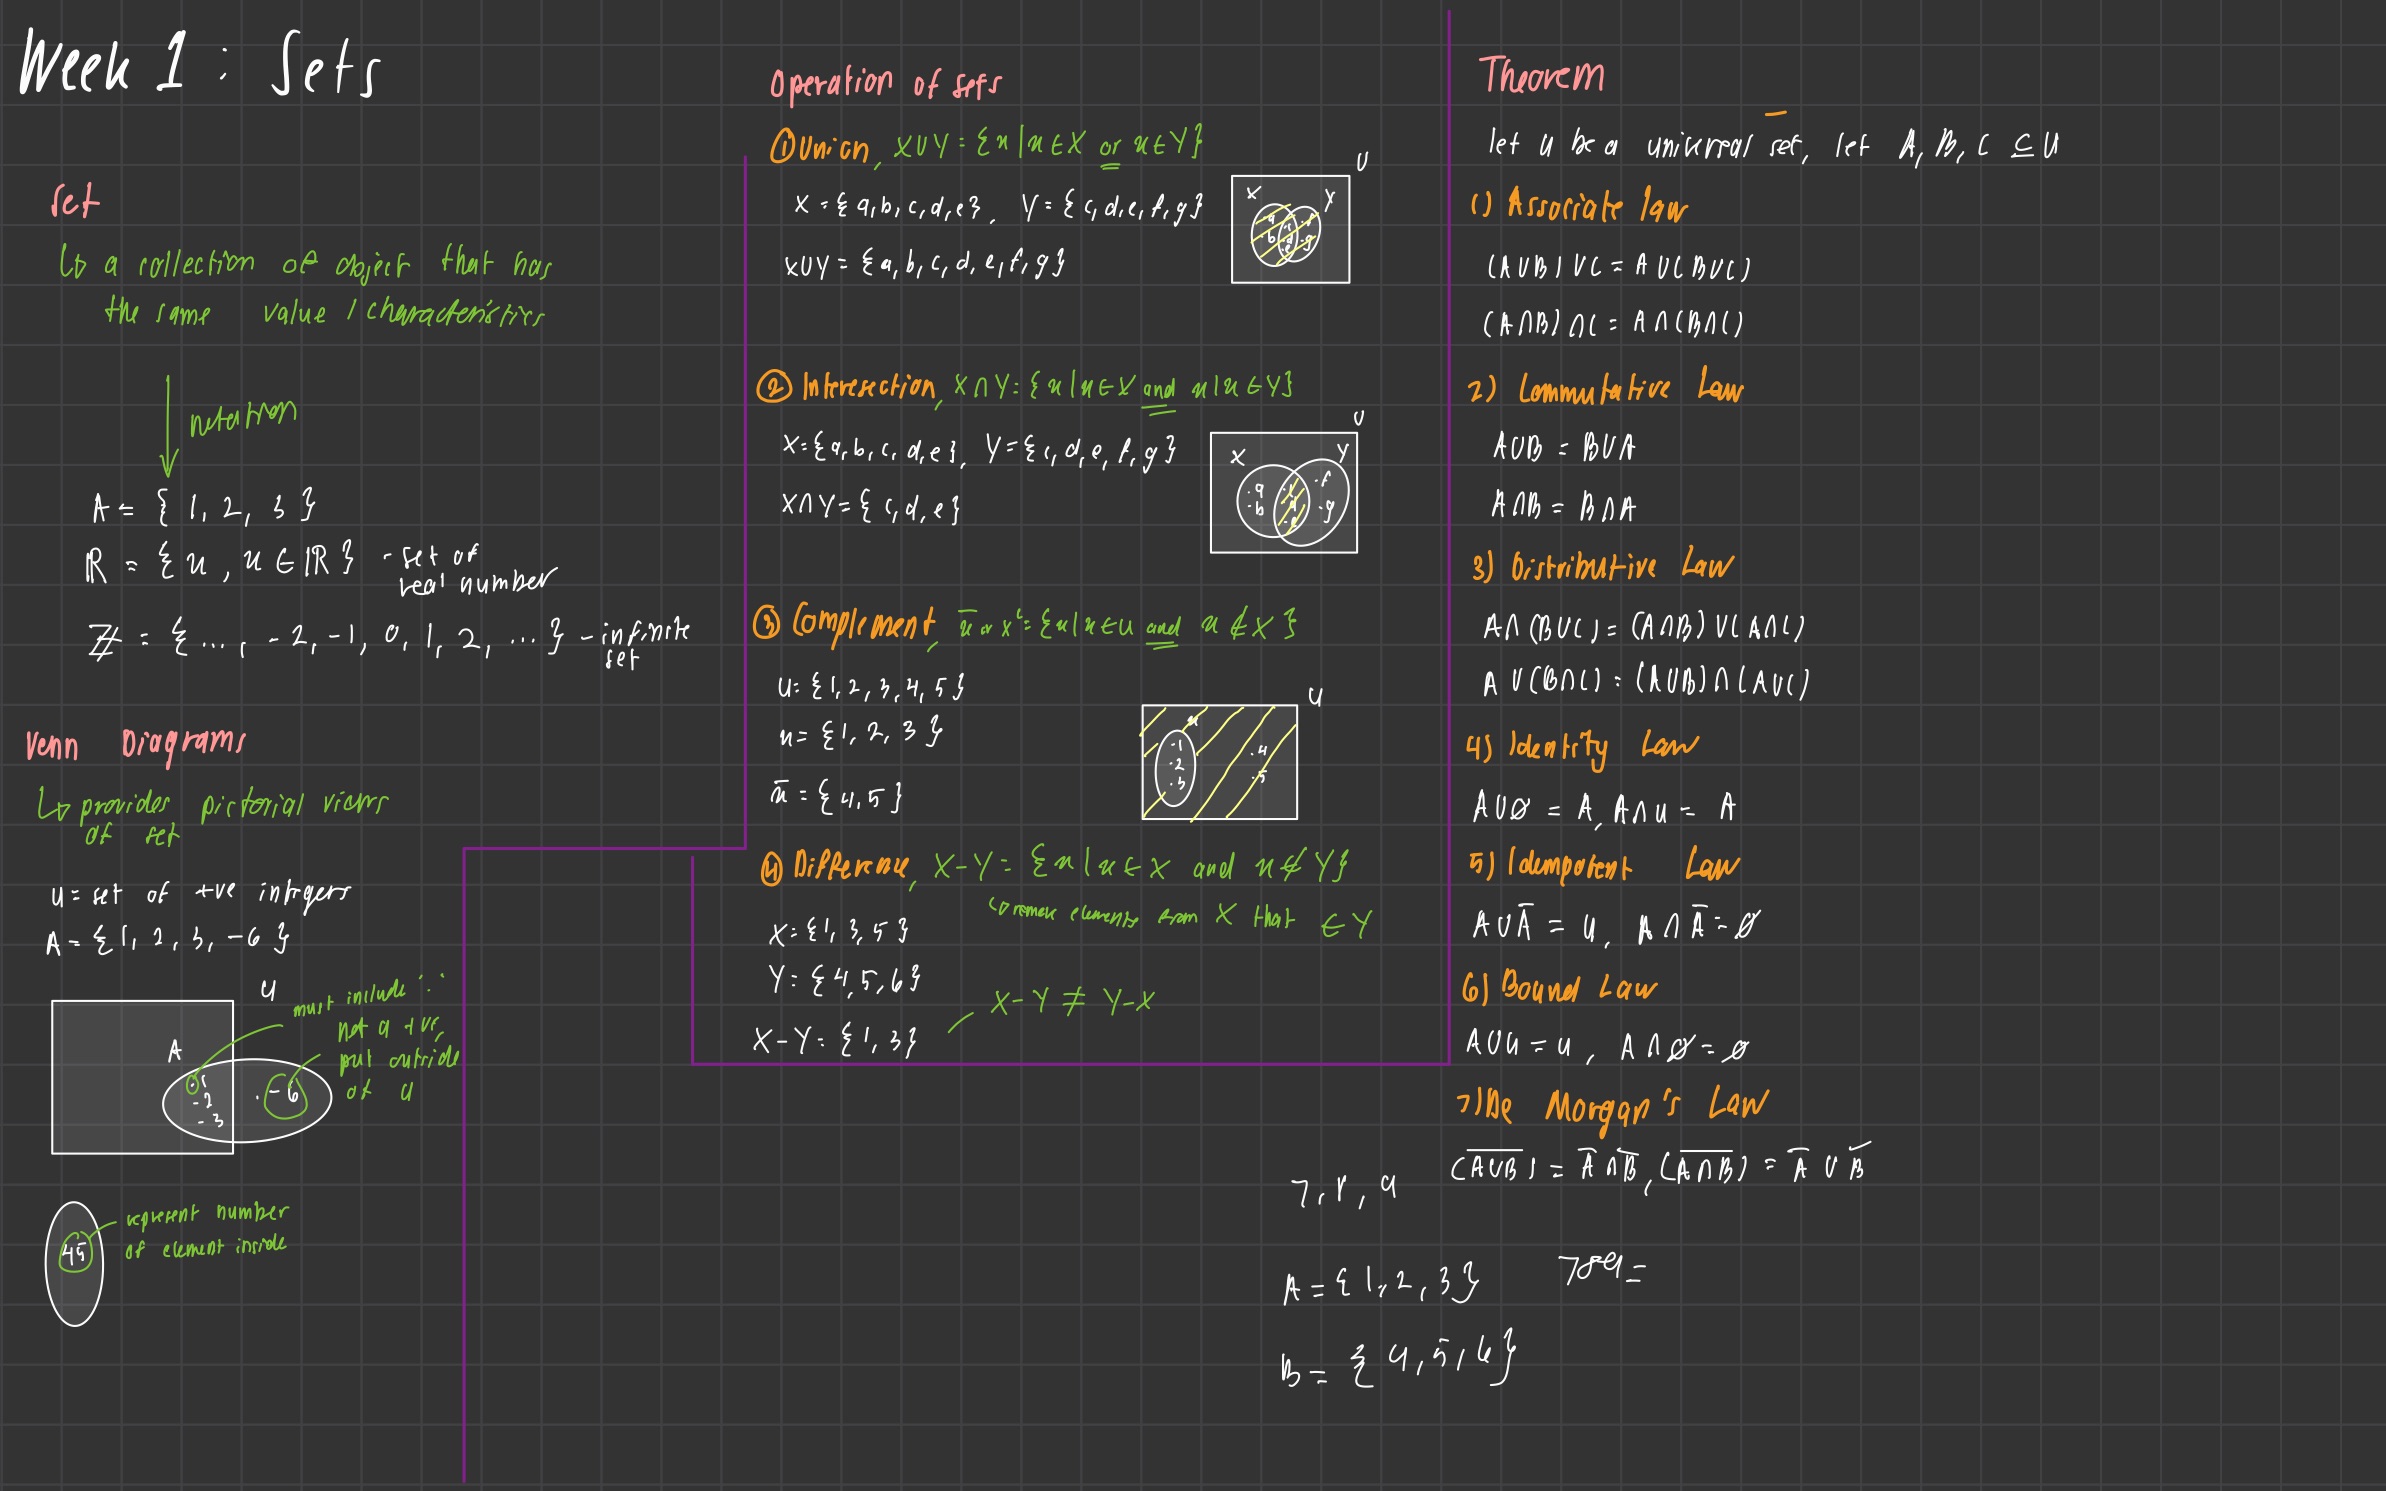 Week 1 : Sets
Set
↳ a collection of object that has
the same value / characteristics
notation
A = { 1, 2, 3 }
ℝ = { x , x ∈ ℝ } - set of
real number
ℤ = { ..., -2, -1, 0, 1, 2, ... } - infinite
set
Venn Diagrams
↳ provides pictorial views
of set
U = set of +ve integers
A = { 1, 2, 3, -6 }
U
must include ∵
not a +ve,
put outside
of U
A
·1
·2
·3
·-6
45
represent number
of element inside
Operation of sets
① Union, X∪Y = {x | x ∈ X or x ∈ Y}
X = {a, b, c, d, e}, Y = {c, d, e, f, g}
X∪Y = {a, b, c, d, e, f, g}
U
X Y
·a ·c ·f
·b ·d ·g
·e
② Interesection, X∩Y = {x | x ∈ X and x | x ∈ Y}
X = {a, b, c, d, e}, Y = {c, d, e, f, g}
X∩Y = {c, d, e}
U
X Y
·a ·c ·f
·b ·d ·g
·e
③ Complement, x̄ or xᶜ = {x | x ∈ U and x ∉ X}
U = {1, 2, 3, 4, 5}
x = {1, 2, 3}
x̄ = {4, 5}
U
x
·1 ·4
·2 ·5
·3
④ Difference, X-Y = {x | x ∈ X and x ∉ Y}
↳ remove elements from X that ∈ Y
X = {1, 3, 5}
Y = {4, 5, 6}
X-Y = {1, 3}
X-Y ≠ Y-X
Theorem
let U be a universal set, let A, B, C ⊆ U
1) Associate law
(A∪B)∪C = A∪(B∪C)
(A∩B)∩C = A∩(B∩C)
2) Commutative Law
A∪B = B∪A
A∩B = B∩A
3) Distributive Law
A∩(B∪C) = (A∩B)∪(A∩C)
A∪(B∩C) = (A∪B)∩(A∪C)
4) Identity Law
A∪∅ = A, A∩U = A
5) Idempotent Law
A∪Ā = U, A∩Ā = ∅
6) Bound Law
A∪U = U, A∩∅ = ∅
7) De Morgan's Law
(A∪B)̅ = Ā∩B̅, (A∩B)̅ = Ā∪B̅
A = {1, 2, 3}
B = {4, 5, 6}